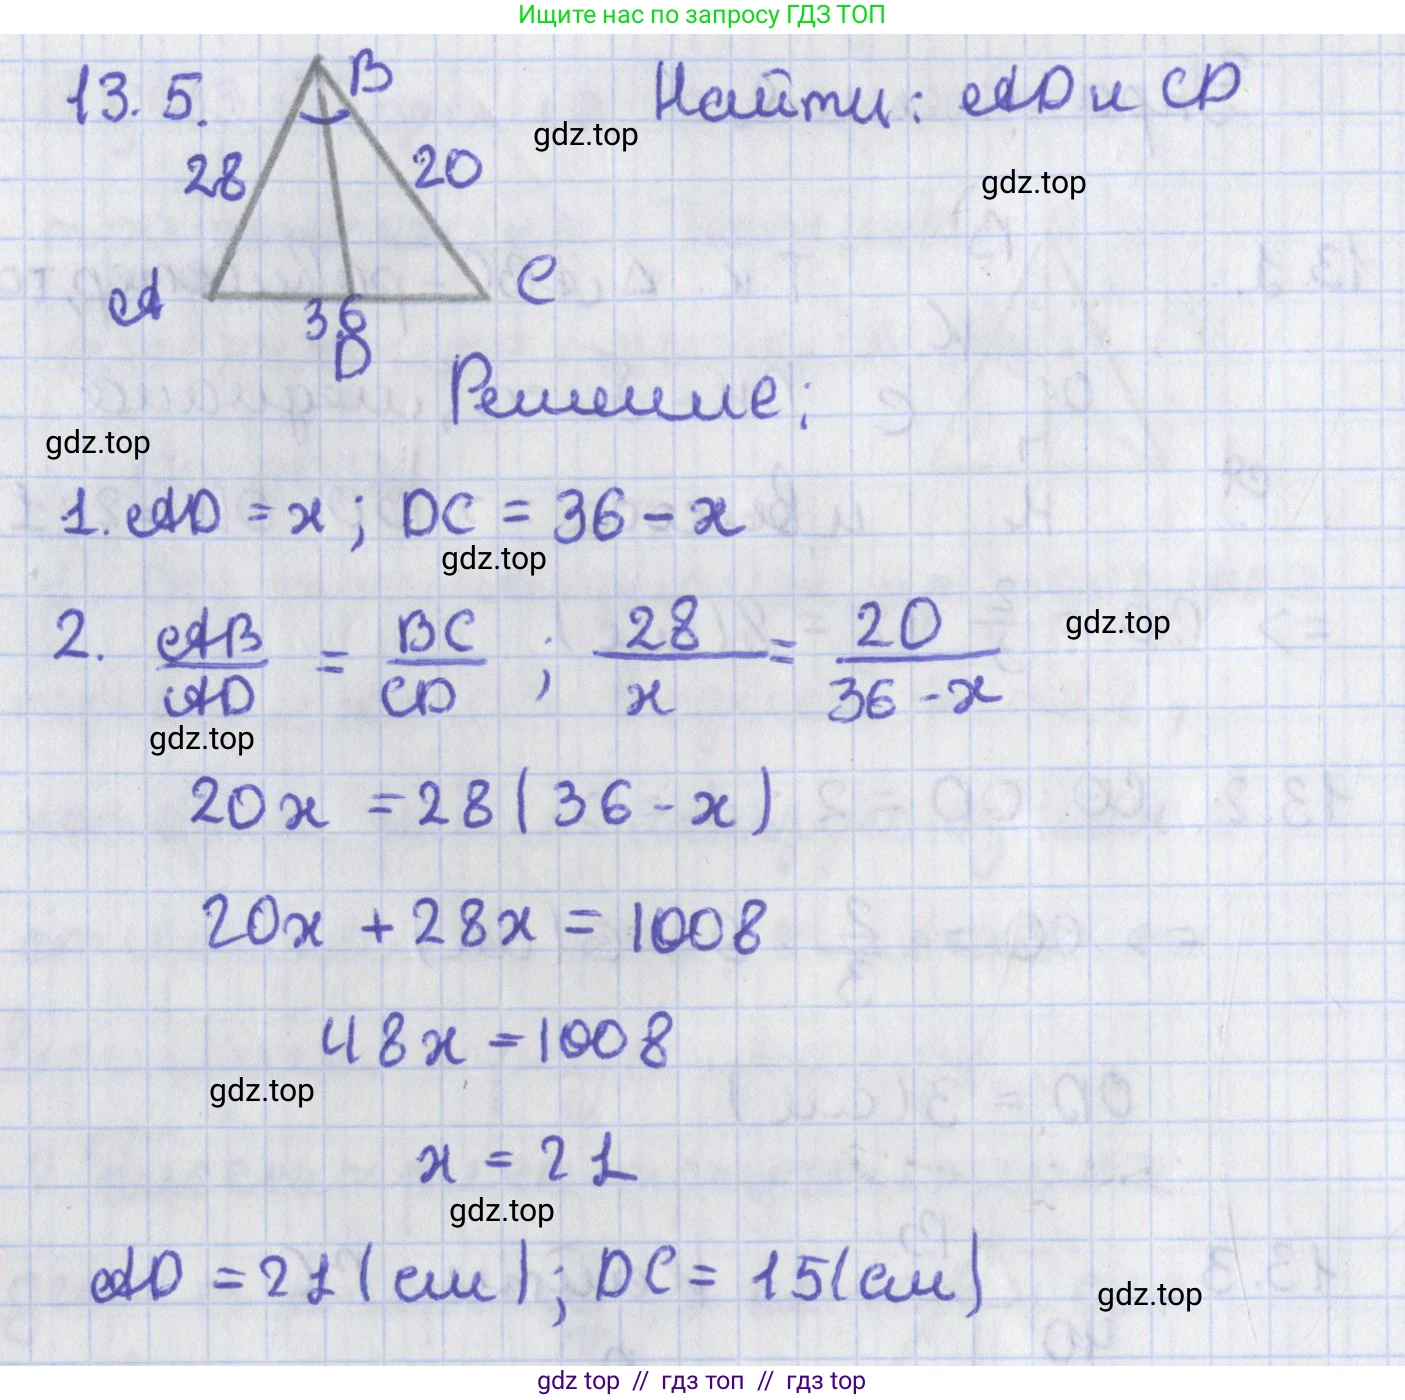 Ищите нас по запросу ГДЗ ТОП
13.5.
B
Найти: AD и CD
gdz.top
28
20
gdz.top
A
C
36
D
Решение:
gdz.top
1. AD = x; DC = 36 - x
gdz.top
2. AB/AD = BC/CD ; 28/x = 20/(36 - x)
gdz.top
gdz.top
20x = 28(36 - x)
20x + 28x = 1008
48x = 1008
gdz.top
x = 21
gdz.top
AD = 21(см); DC = 15(см)
gdz.top
gdz top // гдз топ // gdz top